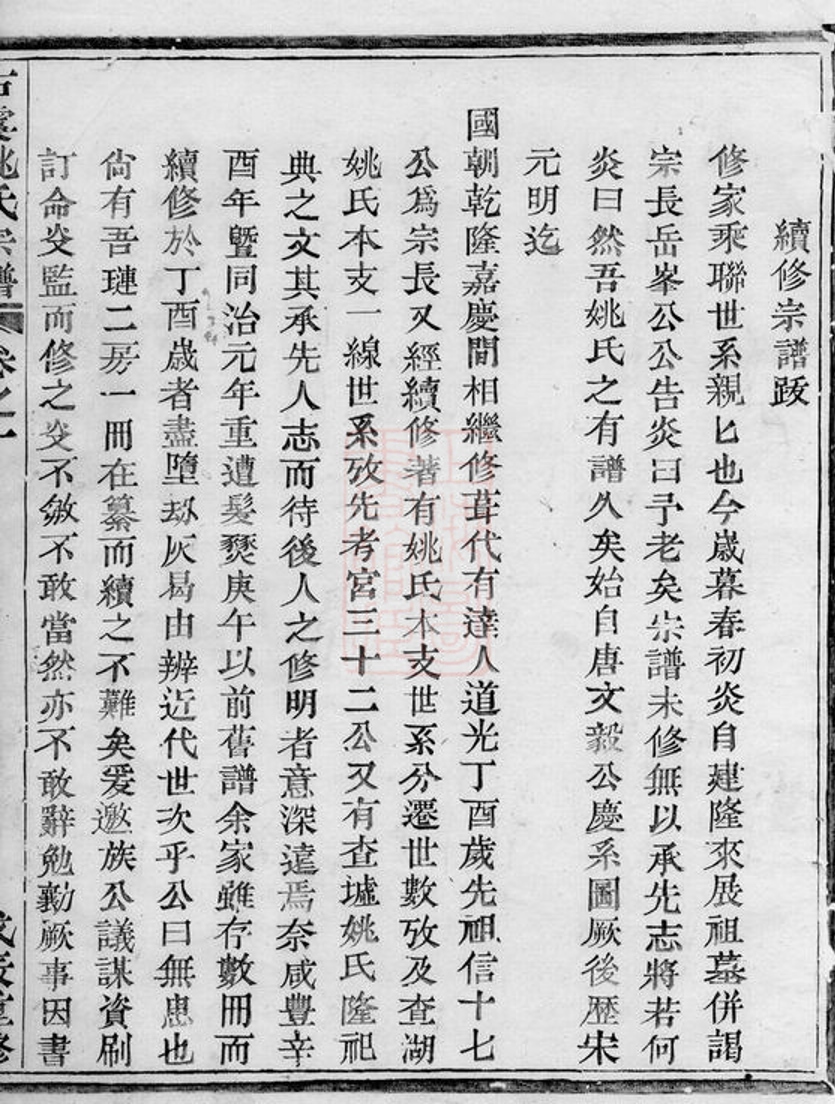 續修宗譜跋
修家乘聯世系親亡也今歲暮春初炎自建隆來展祖墓併謁
宗長岳峯公公告炎曰予老矣宗譜未修無以承先志將若何
炎曰然吾姚氏之有譜久矣始自唐文毅公慶系圖厥後歷宋
元明迄
國朝乾隆嘉慶間相繼修葺代有達人道光丁酉歲先祖信十七
公爲宗長又經續修著有姚氏本支世系分遷世數攷及查湖
姚氏本支一線世系攷先考宮三十二公又有查墟姚氏隆祀
典之文其承先人志而待後人之修明者意深遠焉奈咸豐辛
酉年曁同治元年重遭髮燹庚午以前舊譜余家雖存數冊而
續修於丁酉歲者盡墮劫灰曷由辨近代世次乎公曰無患也
尙有吾璉二房一冊在纂而續之不難矣爰邀族公議謀資刷
訂命炎監而修之炎不敏不敢當然亦不敢辭勉勷厥事因書
姚氏宗譜 卷之一